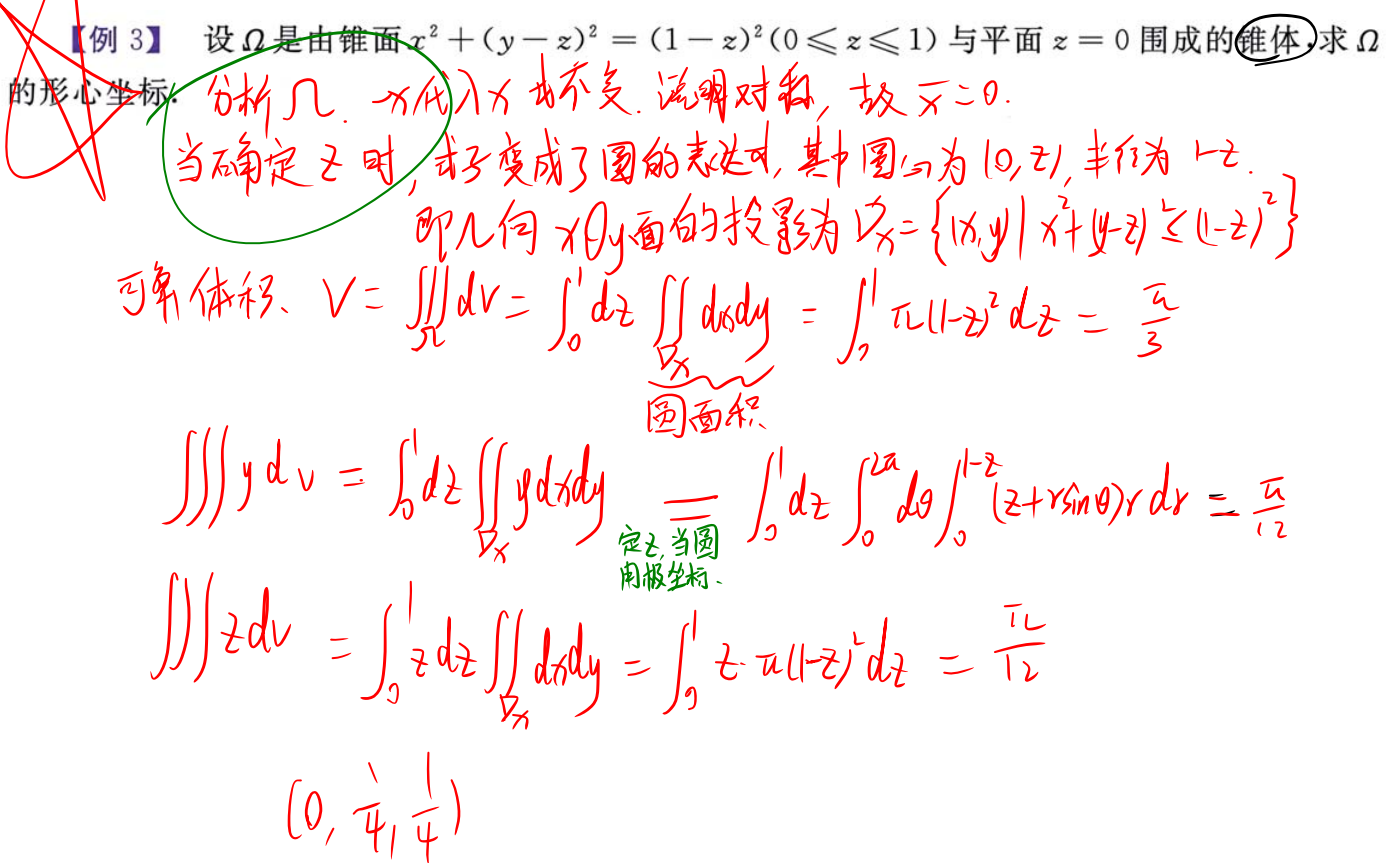 【例 3】 设 Ω 是由锥面 x² + (y − z)² = (1 − z)² (0 ⩽ z ⩽ 1) 与平面 z = 0 围成的锥体,求 Ω
的形心坐标.
分析 Ω. −x 代入 x 式不变. 说明对称, 故 x̄ = 0.
当确定 z 时, 式子变成了圆的表达式, 其中圆心为 (0, z), 半径为 1−z.
即 Ω 向 xOy 面的投影为 Dx = {(x, y) | x² + (y−z)² ≤ (1−z)²}
可算体积、 V = ∭Ω dv = ∫₀¹ dz ∬Dx dxdy = ∫₀¹ π(1−z)² dz = π/3
圆面积
∭ y dv = ∫₀¹ dz ∬Dx y dxdy = ∫₀¹ dz ∫₀^2π dθ ∫₀^1−z (z + r sinθ) r dr = π/12
定z, 当圆
用极坐标.
∭ z dv = ∫₀¹ z dz ∬Dx dxdy = ∫₀¹ z · π(1−z)² dz = π/12
(0, 1/4, 1/4)